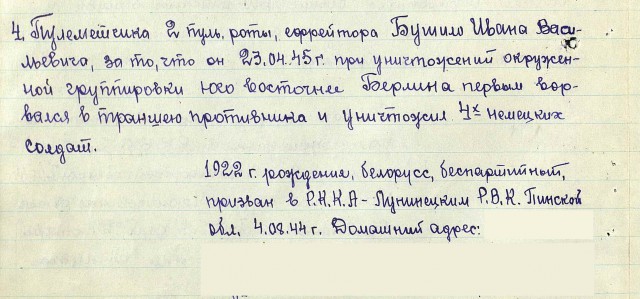 4. Пулеметчика 2 пул. роты, ефрейтора Бушило Ивана Васи-
льевича, за то, что он 23.04.45 г. при уничтожений окружен-
ной группировки юго восточнее Берлина первым вор-
вался в траншею противника и уничтожил 4х немецких
солдат.
1922 г. рождения, белорусс, беспартийный,
призван в Р.К.К.А - Лунинецким Р.В.К. Пинской
обл. 4.08.44 г. Домашний адрес: